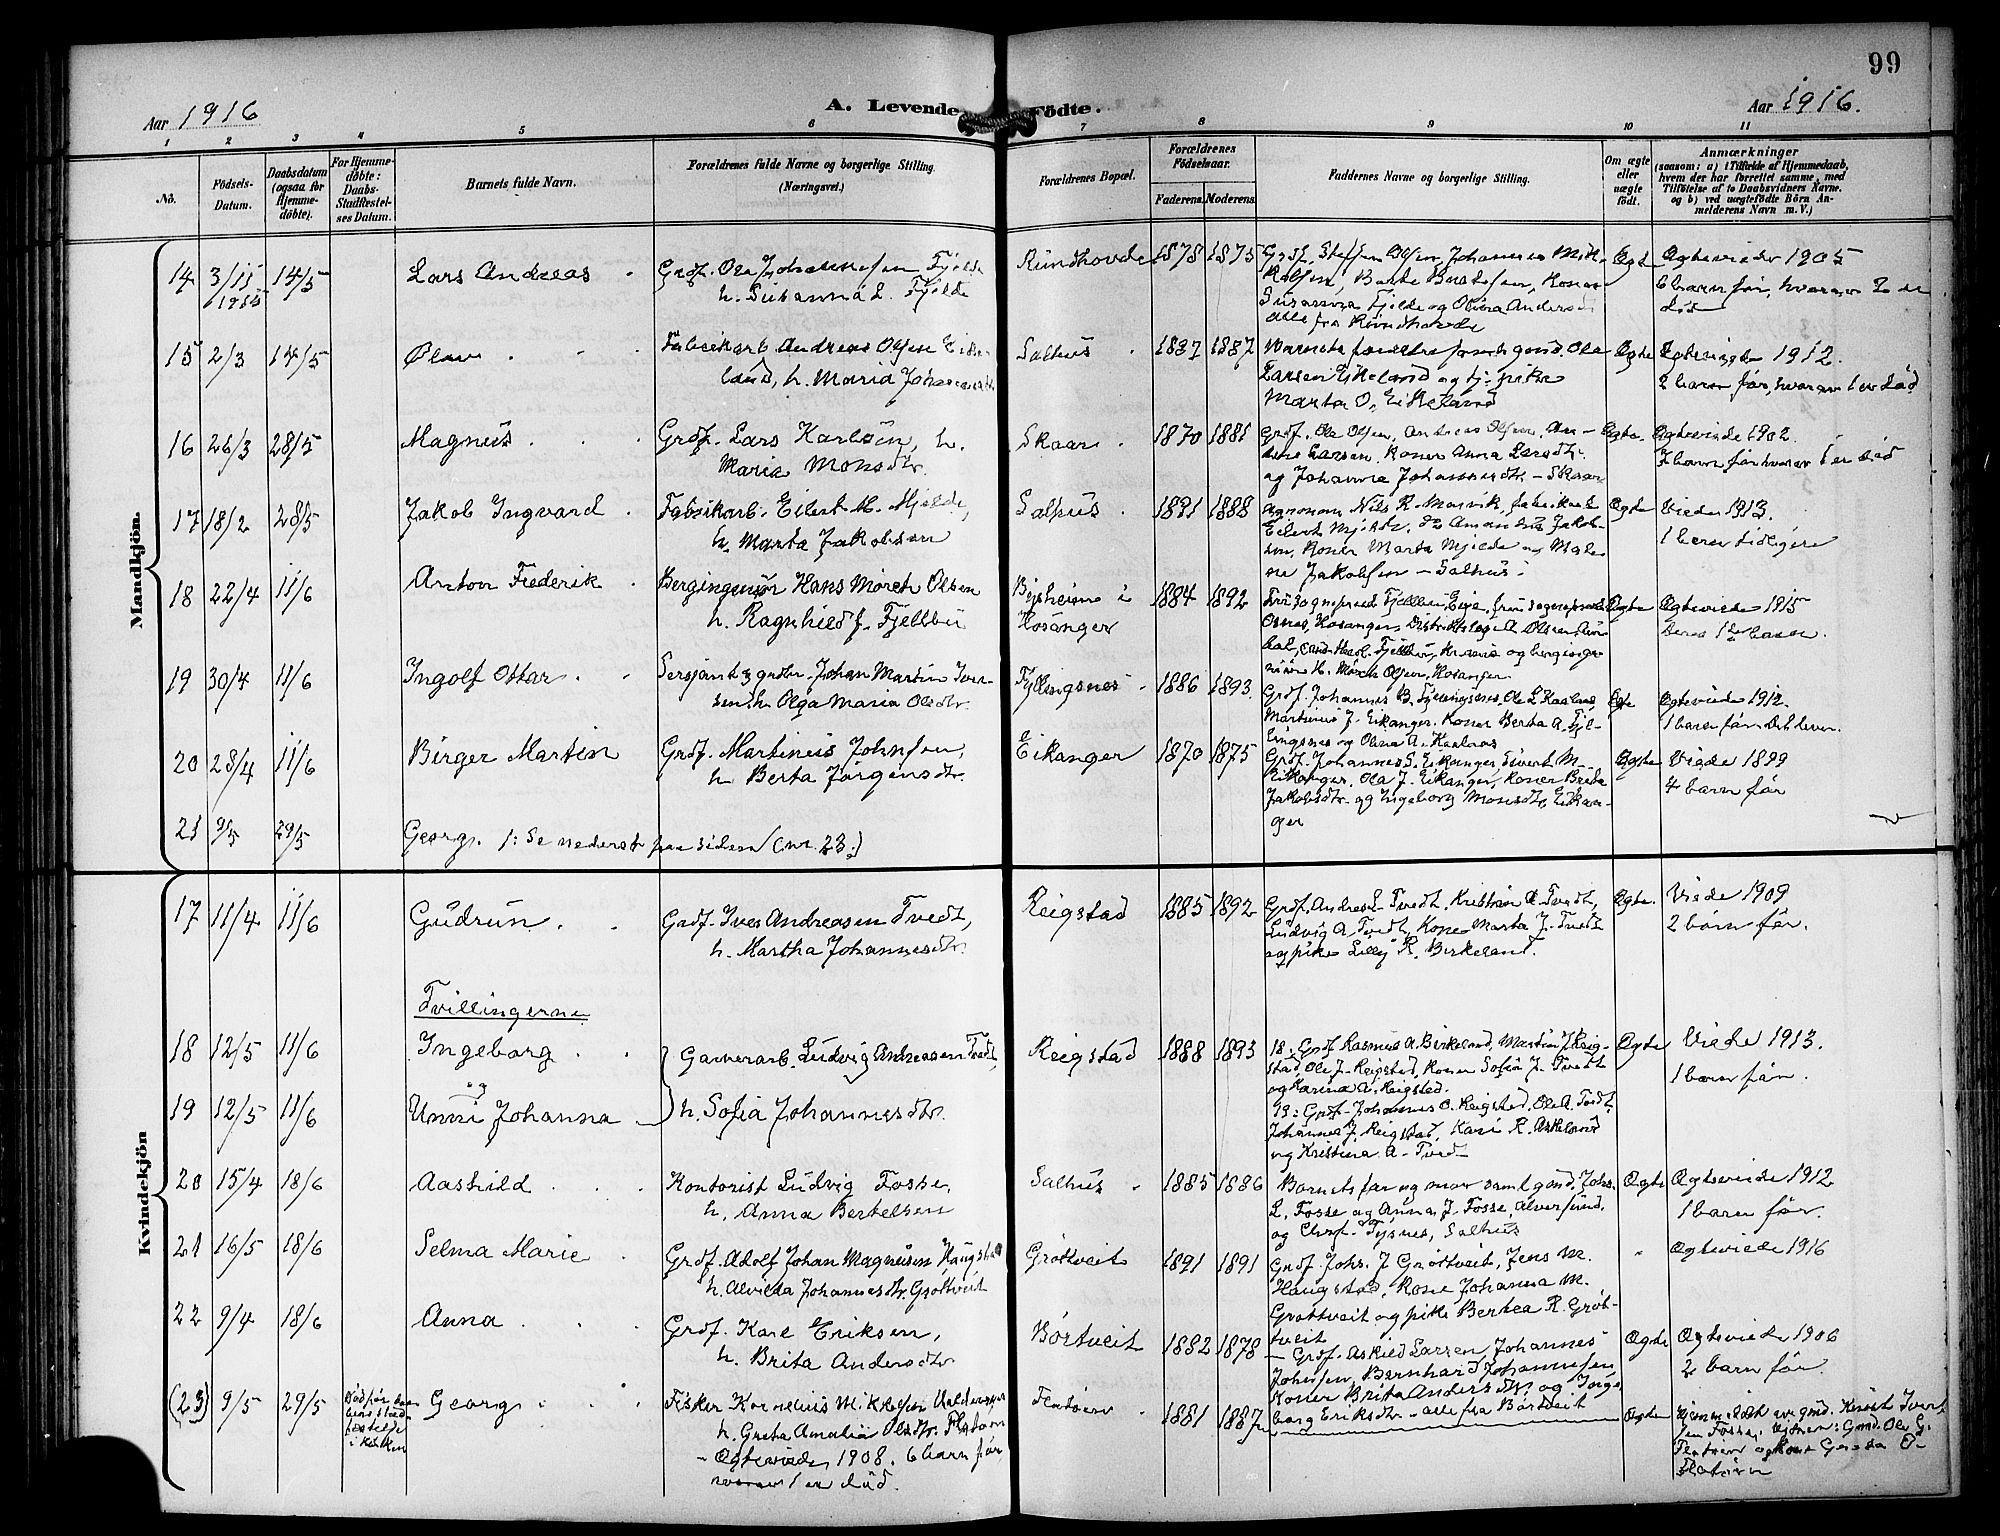 99
Aar 1916
A. Levende Födte.
Aar 1916.
1 2 3 4 5 6 7 8 9 10 11
No.
Födsels-Datum.
Daabsdatum (ogsaa for Hjemme-döbte).
For Hjemme-döbte: Daabs-Stadfæstel-ses Datum.
Barnets fulde Navn.
Forældrenes fulde Navne og borgerlige Stilling. (Næringsvei.)
Forældrenes Bopæl.
Forældrenes Födselsaar.
Faderens. Moderens.
Faddernes Navne og borgerlige Stilling.
Om ægte eller uægte födt.
Anmærkninger
(saasom: a) i Tilfælde af Hjemmedaab, hvem der har forrettet samme, med Tilföielse af to Daabsvidners Navne. og b) ved uægtefödte Börn An-melderens Navn m. V.)
Mandkjön.
14 3/11 1915 14/5 Lars Andreas
Grdf. Ole Johannessen Fjelde
h. Susanna L. Fjelde
Rundhovde 1878 1875
Grdf. Steffen Olsen, Johannes Mik-
Susanna Fjelde og Olina Anders
alle fra Rundhovde
Ægte Ægteviede 1905
6 barn før, hvorav 2 er
død
15 2/3 14/5 Olav
Fabrikarb. Andreas Olsen Eike-
land, h. Maria Johannesdtr.
Salhus 1887 1887
Barnets forældre samt gmd. Ole
Larsen Eikeland og tj. pike
Marta O. Eikeland
Ægte Ægteviede 1912.
2 barn før, hvorav 1 er død
16 26/3 28/5 Magnus
Grdf. Lars Karlsen, h.
Maria Monsdtr.
Skaar 1870 1881
Grdf. Ole Olsen, Andreas Olsen, An-
Larsen. Koner Anna Larsdtr.
og Johanna Johannesdtr. - Skaar
Ægte. Ægteviede 1902.
7 barn før hvorav 1 er død
17 18/2 28/5 Jakob Ingvard
Fabrikarb. Eilert M. Mjelde,
h. Marta Jakobsen
Salhus 1891 1888
Agronom Nils R. Marvik, fabrikarb.
Eilert Mjelde, do Amandus Jakob-
sen, Koner Marta Mjelde og Male-
ne Jakobsen - Salhus.
Ægte Viede 1913.
1 barn tidligere
18 22/4 11/6 Anton Frederik
Bergingeniør Hans Mørch Olsen
h. Ragnhild J. Fjellbu
Bysheim i
Hosanger
1884 1892
Fru sogneprest Fjellbu, Eie, fru sogneprest
Osnes, Hosanger, Distriktslæge A. Olsen
Fjellbu, og berginge-
niør H. Mørch Olsen, Hosanger.
Ægte Ægteviede 1915
Deres 1ste barn.
19 30/4 11/6 Ingolf Ottar
Sersjant & grdbr. Johan Martin Iver-
sen, h. Olga Maria Olsdtr.
Fyllingsnes 1886 1893.
Grdf. Johannes B. Fyllingsnes, Ole L. Kaalaas,
Martinus J. Eikanger. Koner Berta A. Fyl-
lingsnes og Olina A. Kaalaas
Ægte Ægteviede 1912.
1 barn før. Det lever.
20 28/4 11/6 Birger Martin
Grdf. Martinus Johnsen,
h. Berta Jørgensdtr.
Eikanger 1870 1875
Grdf. Johannes S. Eikanger, Sivert M.
Eikanger. Ola J. Eikanger, Koner Berta
Jakobsdtr. og Ingeborg Monsdtr, Eikan-
ger
Ægte Viede 1899
4 barn før
21 9/5 29/5 Georg. /: Se nederst paa siden (nr. 23:)
Kvindekjön
17 11/4 11/6 Gudrun
Grdf. Iver Andreasen Tvedt,
h. Martha Johannesdtr.
Reigstad 1885 1892
Grdf. Andreas L. Tvedt, Kristian A. Tvedt,
Ludvig A. Tvedt, Kone Marta J. Tvedt
og pike Lilly R. Birkeland.
Ægte. Viede 1909
2 børn før.
Tvillingerne
18 12/5 11/6 Ingeborg
og
19 12/5 11/6 Unni Johanna
Garverarb. Ludvig Andreasen Tvedt,
h. Sofia Johannesdtr.
Reigstad 1888 1893
18: Grdf Rasmus A. Birkeland, Martin J. Reig-
stad, Ole J. Reigstad, Koner Sofia J. Tvedt
og Karina A. Reigstad.
19: Grdf. Johannes O. Reigstad, Ole A. Tvedt,
Johannes J. Reigstad, Kari R. Askeland
og Kristina A. Tvedt
Ægte Viede 1913.
1 barn før.
20 15/4 18/6 Aashild
Kontorist Ludvig Fosse,
h. Anna Bertelsen
Salhus 1885 1886
Barnets far og mor samt gmd. Johs.
L. Fosse og Anna J. Fosse, Alversund,
og Chrf. Tysnes, Salhus
Ægte Ægteviede 1912
1 barn før.
21 16/5 18/6 Selma Marie
Grdf. Adolf Johan Magnusen Haugstad
h. Alvilda Johannesdtr. Grøttveit
Grøttveit 1891 1891
Grdf. Johs. J. Grøttveit, Jens M.
Haugstad, Kone Johanna M.
Grøttveit og pike Bertea R. Grøt-
tveit
" Ægteviede 1916
22 9/4 18/6 Anna
Grdf. Karl Eriksen,
h. Brita Andersdtr.
Børtveit 1882 1878
- Grdf. Askild Larsen, Johannes
Johnsen, Bernhard Johannesen
Koner Brita Andersdtr. og Inge-
borg Eriksdtr. - alle fra Børtveit
Ægte Ægteviede 1906
2 barn før
(23) 9/5 29/5 Georg
i kirken
Fisker Kornelius Mikkelsen
h. Greta Amalia Olsdtr. Flatøen
- Ægteviede 1908. 6 barn før,
hvorav 1 er død.
Flatøen 1881 1887
Ægte Hjemmedøbt av gmd. Iver
sen Fosse, Vidner: Gmd. Ole G.
Flatøen og kone Gresta O.
Flatøen